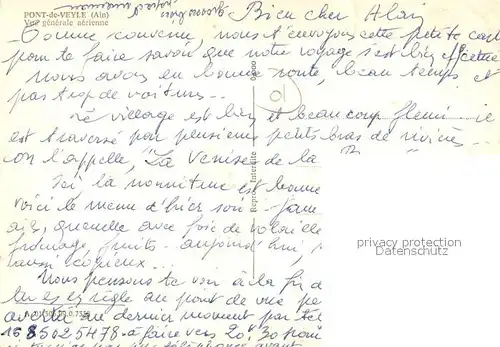 PONT-de-VEYLE (Ain)
Vue générale aérienne
grosses bises
Bien cher Alain
Comme convenu, nous t'envoyons cette petite carte
pour te faire savoir que notre voyage s'est bien effectué
Nous avons eu bonne route, beau temps et
pas trop de voitures...
Le village est bien et beaucoup fleuri. il
est traversé par plusieurs petits bras de rivière
on l'appelle, "La Venise de la
Ici la nourriture est bonne
voici le menu d'hier soir -
quenelle avec foie de volaille
fromage, fruits - aujourd'hui,
aussi copieux...
Nous pensons te voir à la fin d
tu es en règle au point de vue
averti au dernier moment par tel
16 85025478 à faire vers 20h30
Repro. Interdite
privacy protection
Datenschutz